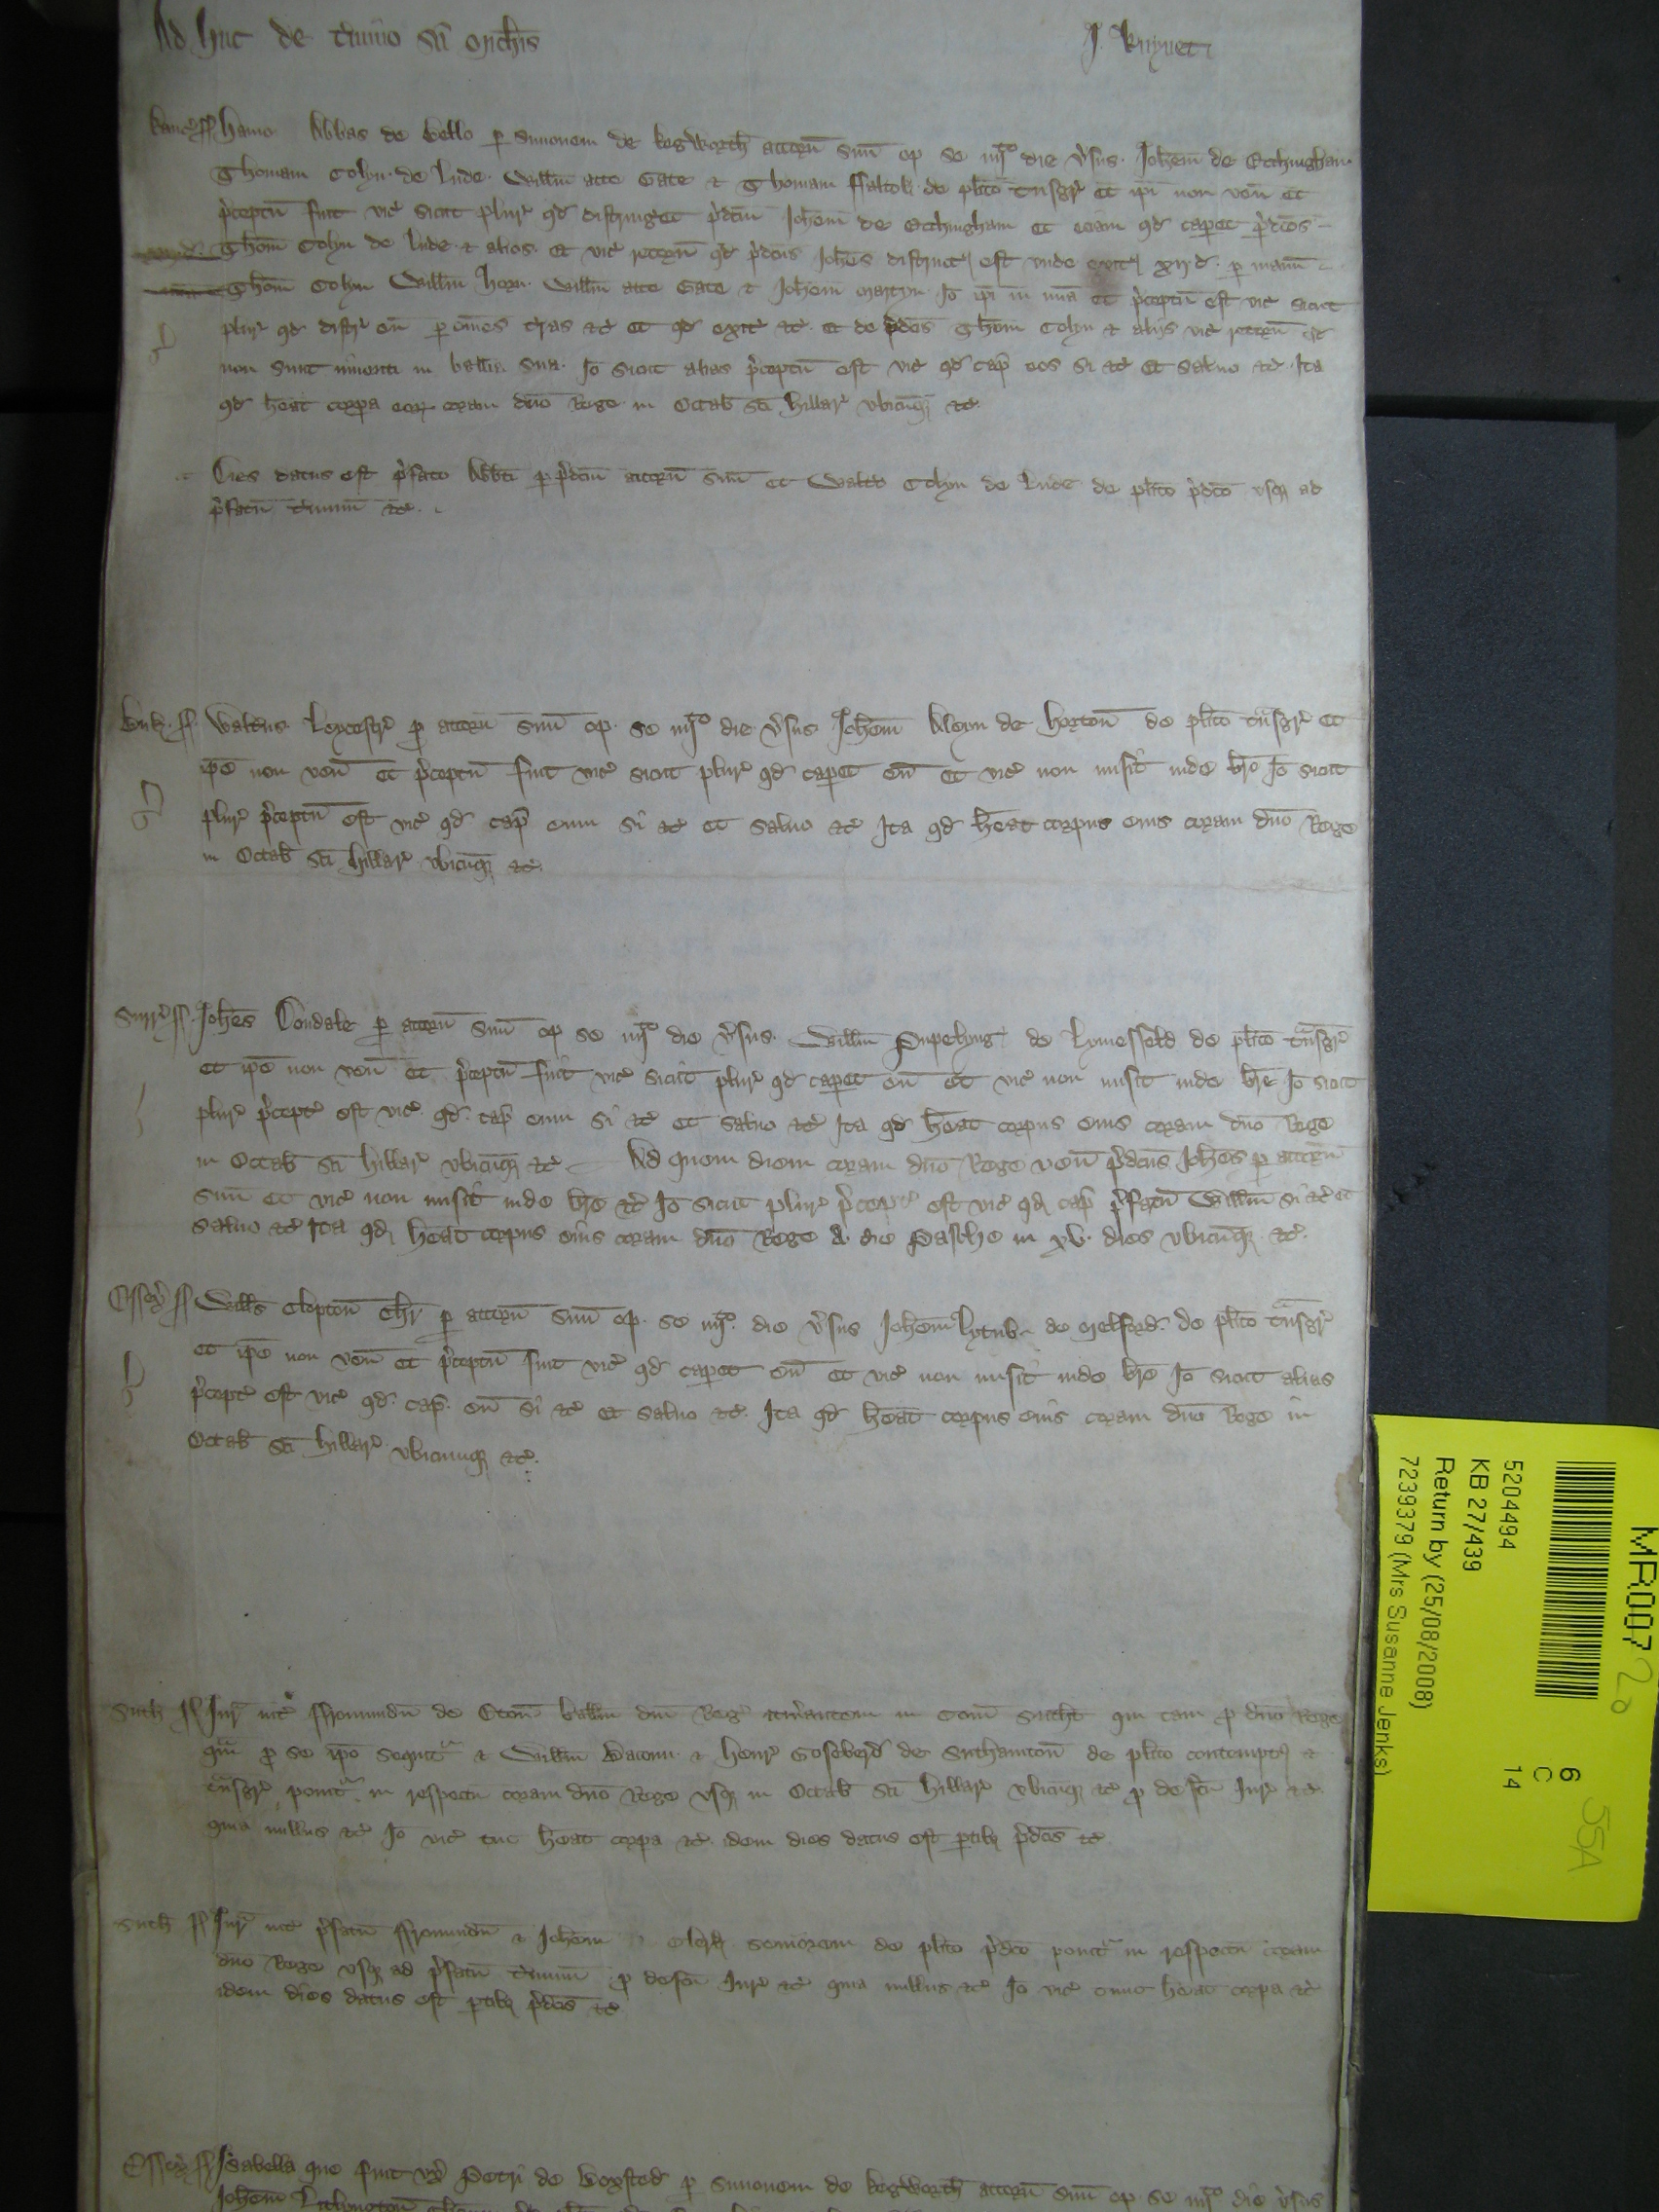 Ad huc de t'mino sci Mich'is J. Knyvet
Kanc' ss Hamo Abbas de Bello p' Simonem de Kegworth attorn' suu' op' se iiijto die v'sus Joh'em de Ecchingham
Thomam Colyn de Lyde Will'm atte Gate & Thomam de pl'ito t'nsgr' et ip'i non ven' et
p'ceptu' fuit vic' sicut plur' q'd distring'et p'dcm Joh'em de Ecchingham et eciam q'd cap'et p'dcos
Thom' Colyn de Lyde & alios et vic' retorn' q'd p'dcus Joh'es district' est unde exit' xij d. p' manu'
Thom' Colyn Will'm Horn Will'm atte Gate & Joh'em Martyn Io ip'i in m'ia et p'ceptu' est vic' sicut
plur' q'd distr' eu' p' om'es t'ras &c' et q'd exit' &c' et de p'dcis Thom' Colyn & aliis vic' retorn' q'd
non sunt inventi in ball'ia sua Io sicut alias p'ceptu' est vic' q'd cap' eos si &c' et salvo &c' Ita
q'd h'eat corpora eor' coram d'no Rege in Octab' sci Hillar' ubicu'q' &c'
Dies datus est p'fato Abb'i p' p'dcm attorn' suu' et Walt'o Colyn de Lyde de pl'ito p'dco usq' ad
p'fatu' t'minu' &c'
Buk' ss Walt'us Leycestr' p' attorn' suu' op' se iiijto die v'sus Joh'em Aleyn de Horton' de pl'ito t'nsgr' et
ip'e non ven' et p'ceptu' fuit vic' sicut plur' q'd cap'et eu' et vic' non misit inde br'e Io sicut
plur' p'ceptu' est vic' q'd cap' eum si &c' et salvo &c' Ita q'd h'eat corpus eius coram d'no Rege
in Octab' sci Hillar' ubicu'q' &c'
Surr' ss Joh'es Dondale p' attorn' suu' op' se iiijto die v'sus Will'm Pupelyng de Lymesfeld de pl'ito t'nsgr'
et ip'e non ven' et p'ceptu' fuit vic' sicut plur' q'd cap'et eu' et vic' non misit inde br'e Io sicut
plur' p'cept' est vic' q'd cap' eum si &c' et salvo &c' Ita q'd h'eat corpus eius coram d'no Rege
in Octab' sci Hillar' ubicu'q' &c' Ad quem diem coram d'no Rege ven' p'dcus Joh'es p' attorn'
suu' et vic' non misit inde br'e &c' Io sicut plur' p'cept' est vic' q'd cap' p'fatu' Will'm si &c' et
salvo &c' Ita q'd h'eat corpus eius coram d'no Rege A die Pasche in xv dies ubicu'q' &c'
Essex' ss Will's Clopton' Ch'r p' attorn' suu' op' se iiijto die v'sus Joh'em de Melford de pl'ito t'nsgr'
et ip'e non ven' et p'ceptu' fuit vic' q'd cap'et eu' et vic' non misit inde br'e Io sicut alias
p'cept' est vic' q'd cap' eu' si &c' et salvo &c' Ita q'd h'eat corpus eius coram d'no Rege in
Octab' sci Hillar' ubicumq' &c'
Suth' ss Jur' int' Fromundu' de Eton' ball'm d'ni Reg' itin'antem in Com' Sutht' qui tam p' d'no Rege
qu'm p' se ip'o sequit' & Will'm Bacoun & Henr' Goseberd de Suthamton' de pl'ito contempt' &
t'nsgr' ponit' in respectu' coram d'no Rege usq' in Octab' sci Hillar' ubicu'q' &c' p' def'cu' Jur' &c'
quia nullus &c' Io vic' tu'c h'eat corpora &c' idem dies datus est p'tib' p'dcis &c'
Suth' ss Jur' int' p'fatu' Fromundu' & Joh'em Clerk seniorem de pl'ito p'dco ponit' in respectu' coram
d'no Rege usq' ad p'fatu' t'minu' p' def'cu' Jur' &c' quia nullus &c' Io vic' tunc h'eat corpora &c'
idem dies datus est p'tib' p'dcis &c'
Essex' ss Isabella que fuit ux' Petri de Boxsted p' Simonem de Kegworth attorn' suu' op' se iiijto die v'sus
Joh'em
MR007 20
6
C
14
55A
5204494
KB 27/439
Return by (25/08/2008)
7239379 (Mrs Susanne Jenks)